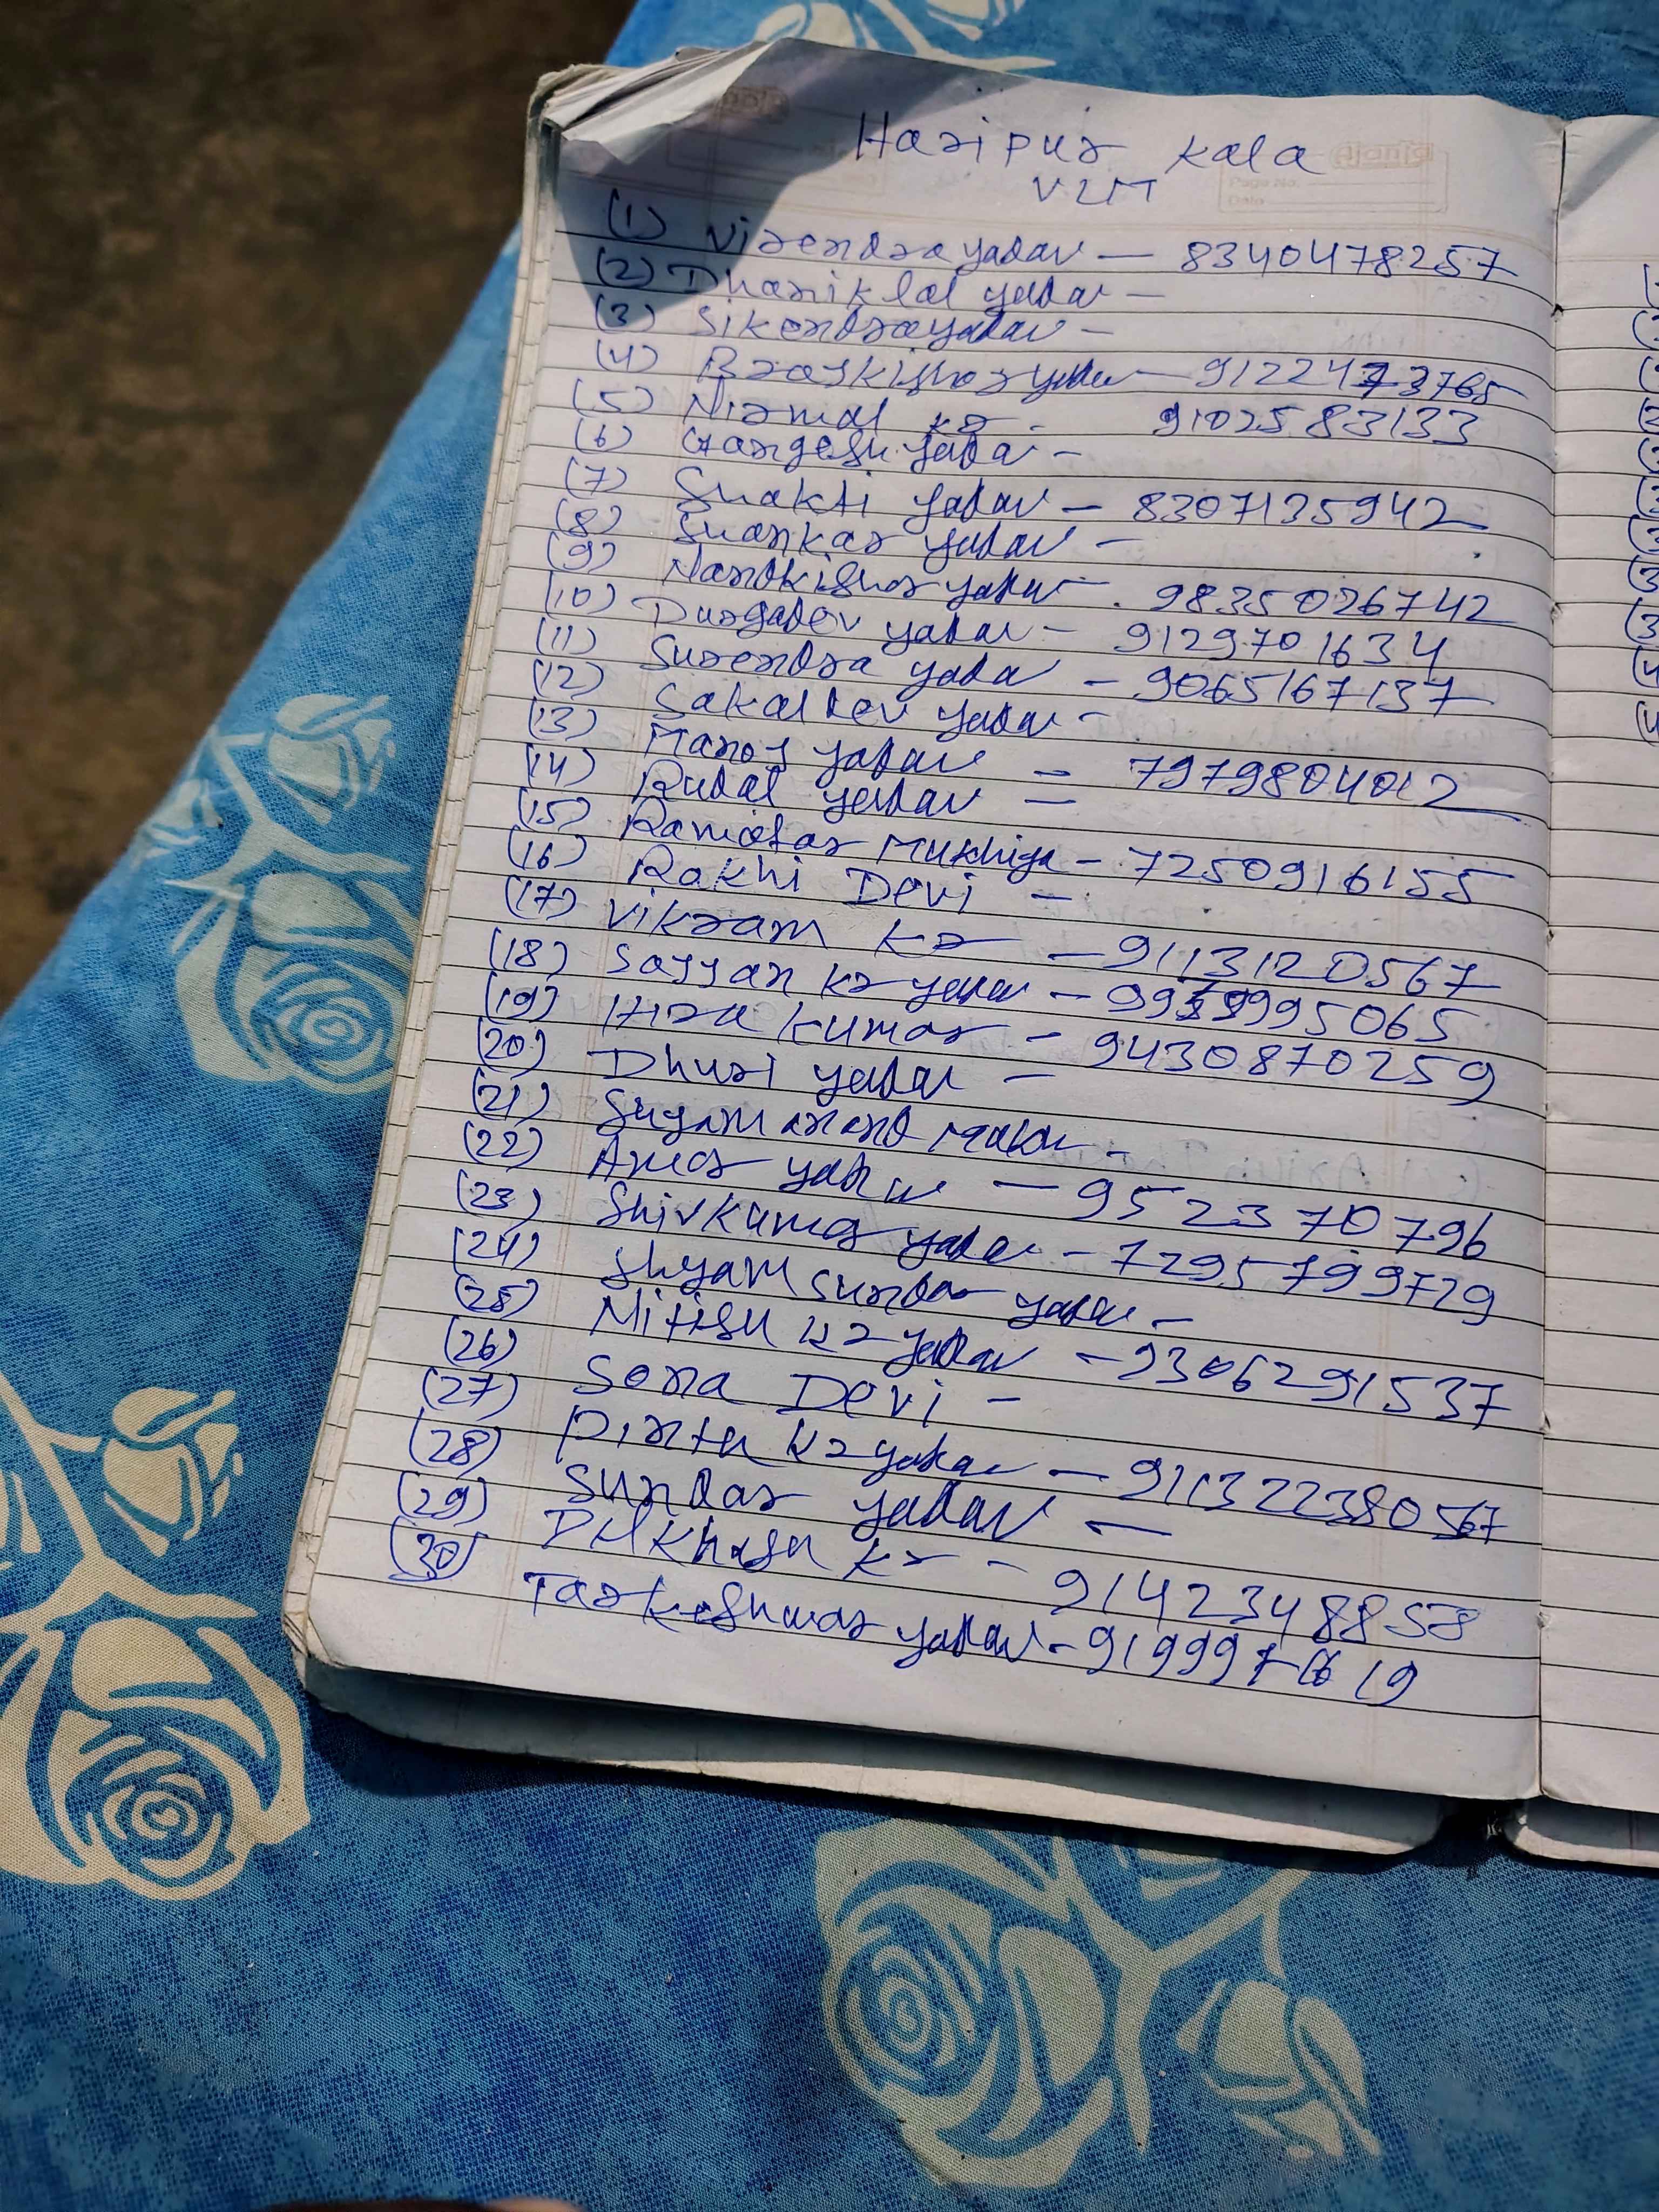 Haripur Kala
Ajanta
Page No.
Date
(1) Virendra yadav — 8340478257
(2) Dhaniklal yadav —
(3) Sikendra yadav —
(4) Brajkishor yadav — 9122473765
(5) Nirmal kr - 9102583133
(6) Gangesh yadav -
(7) Shakti yadav — 8307135942
(8) Shankar yadav —
(9) Nandkishor yadav - 9835026742
(10) Durgadev yadav — 9129701634
(11) Surendra yada — 9065167137
(12) Sakaldev yadav -
(13) Manoj yadav — 7979804012
(14) Rudal yadav —
(15) Ramotar Mukhiya — 7250916155
(16) Rakhi Devi —
(17) Vikram kr — 9113120567
(18) Sajjan kr yadav — 995065
(19) Hira kumar — 9430870259
(20) Dhuri yadav —
(21) anand -
(22) yadav — 952370796
(23) Shivkumar yadav — 7295799729
(24) Shyam Sundar yadav —
(25) Nitish kr yadav — 9306291537
(26) Sona Devi —
(27) Pintu kr yadav — 91132238057
(28) Sundar yadav —
(29) Dilkhush kr - 9142348858
(30) Tarkeshwar yadav - 91999